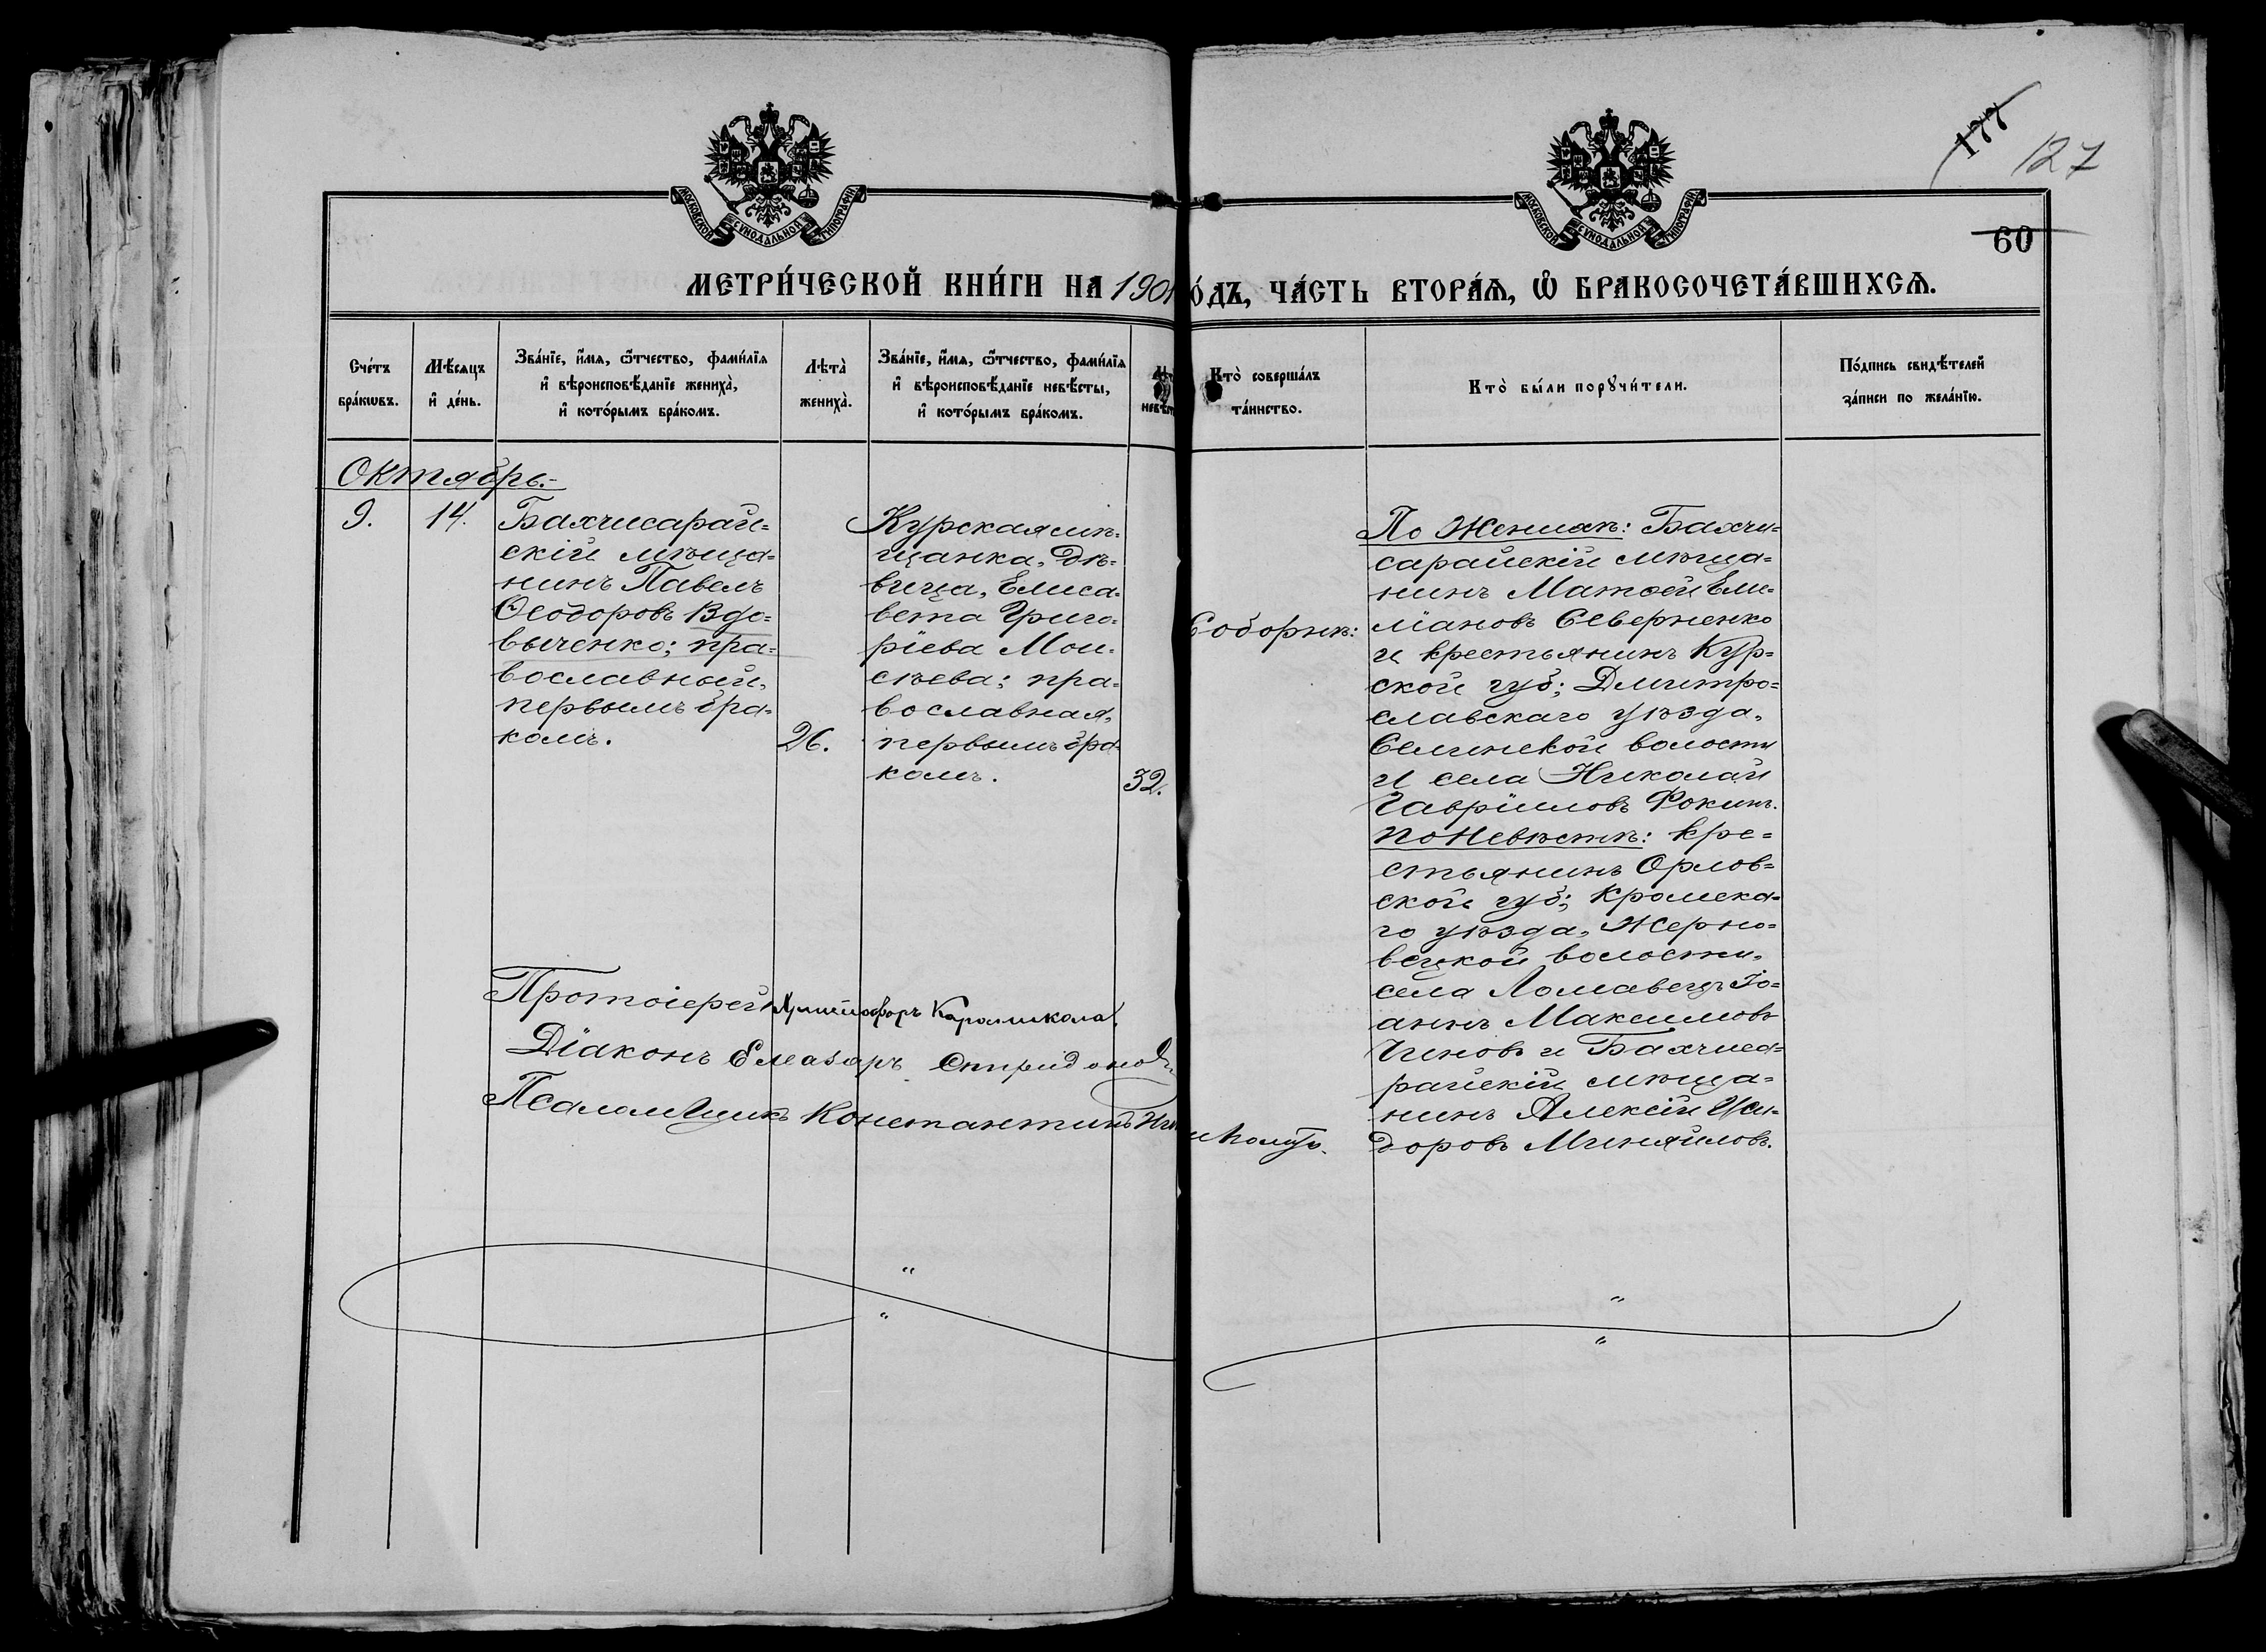 177
127
60
МОСКОВСКОЙ СѴНОДАЛЬНОЙ ТИПОГРАФІИ
МОСКОВСКОЙ СѴНОДАЛЬНОЙ ТИПОГРАФІИ
МЕТРИ́ЧЕСКОЙ КНИ́ГИ НА 1901
О́ДЪ, ЧА́СТЬ ВТОРА́Ѧ, Ѽ БРАКОСОЧЕТА́ВШИХСѦ.
Сче́тъ
бра́кѡвъ.
Мѣ́сѧцъ
и҆ де́нь.
Зва́нїе, и҆́мѧ, ѻ҆́тчество, фами́лїѧ
и҆ вѣроисповѣ́данїе жениха̀,
и҆ кото́рымъ бра́комъ.
Лѣта̀
жениха̀.
Зва́нїе, и҆́мѧ, ѻ҆́тчество, фами́лїѧ
и҆ вѣроисповѣ́данїе невѣ́сты,
и҆ кото́рымъ бра́комъ.
невѣст
Кто̀ соверша́лъ
та́инство.
Кто̀ бы́ли порꙋчи́тели.
По́дпись свидѣ́телей
за́писи по жела́нїю.
Октябрь.-
9.
14.
Бахчисарай=
скій мѣща=
нинъ Павелъ
Ѳеодоровъ Вдо=
выченко; пра=
вославный,
первымъ бра=
комъ.
26.
Курская мѣ=
щанка, дѣ=
вица, Елиса=
вета Григо=
ріева Мои=
сѣева; пра=
вославная,
первымъ бра=
комъ.
32.
Соборнѣ:
По Женихѣ: Бахчи=
сарайскій мѣща=
нинъ Матѳей Еми=
ліановъ Северненко
и крестьянинъ Кур=
ской губ; Дмитро=
славскаго уѣзда,
Селинской волости
и села Николай
Гавріиловъ Фокинъ.
По Невѣстѣ: кре=
стьянинъ Орлов=
ской губ; Кромска=
го уѣзда, Жерно=
вецкой волости,
села Ломавецъ Іо=
аннъ Максимовъ
Чиновъ и Бахчиса=
райскій мѣща=
нинъ Алексій Иси=
доровъ Миняйловъ.
Протоіерей
Діаконъ Елеазаръ Спиридонов
Псаломщикъ Константинъ